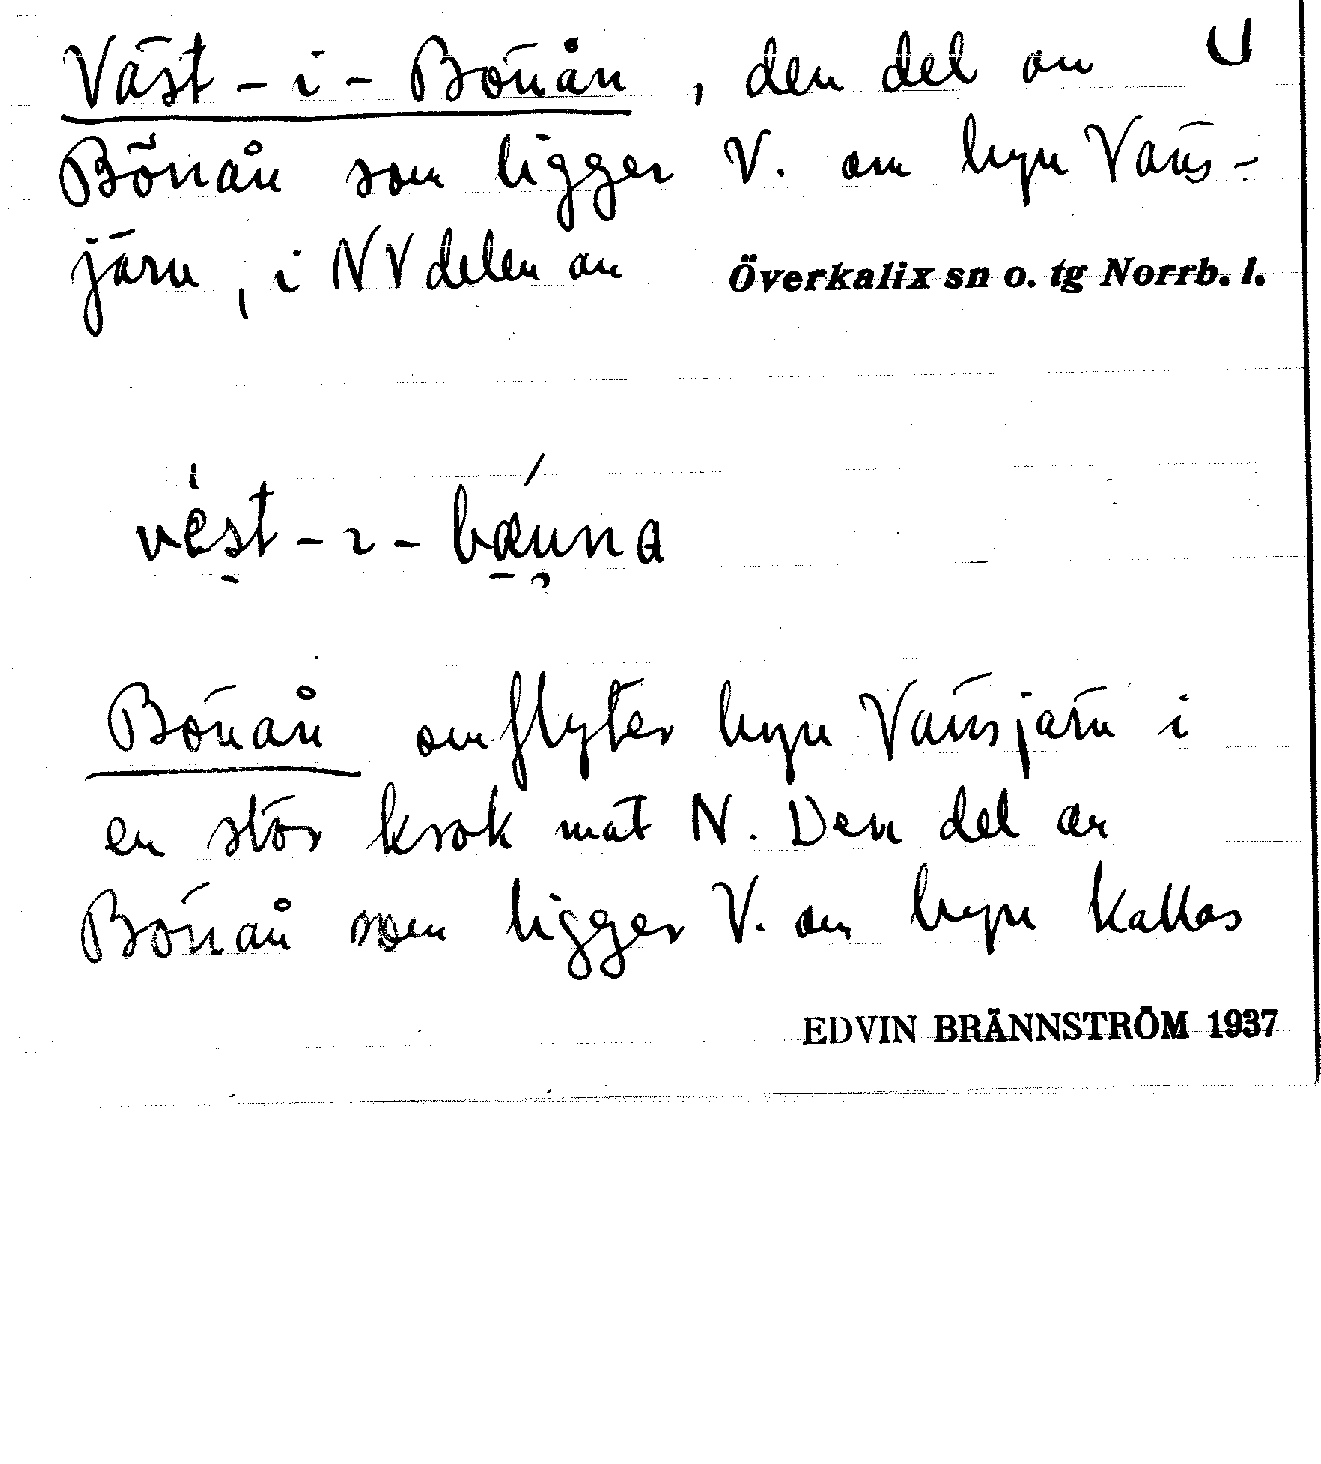 Väst-i-Bönån, den del av U
Bönån som ligger V. om byn Väns-
järv, i NV delen av Överkalix sn o. tg Norrb. l.
vest-ı-bæuna
Bönån omflyter byn Vänsjärv i
en stor krok mot N. Den del av
Bönån som ligger V. om byn kallas
EDVIN BRÄNNSTRÖM 1937